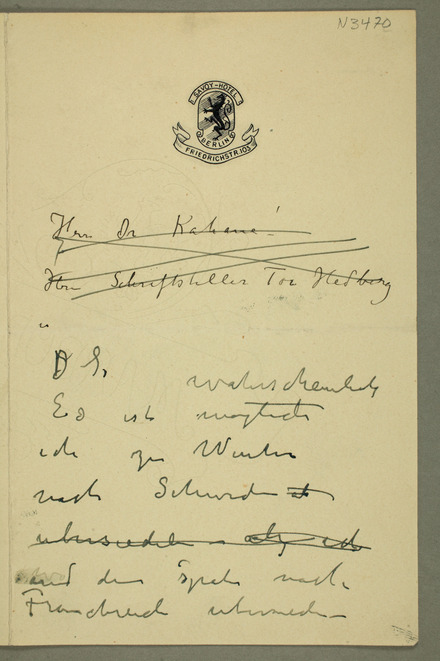 N3470
SAVOY-HOTEL
BERLIN
FRIEDRICHSTR. 103
Herrn Dr Kahane!
Herrn Schriftsteller Tor Hedberg
"
wahrscheinlich
Es ist möglich
ich zu Winter
nach Schweden
übersiedeln
und dann später nach
Frankreich übersiedeln